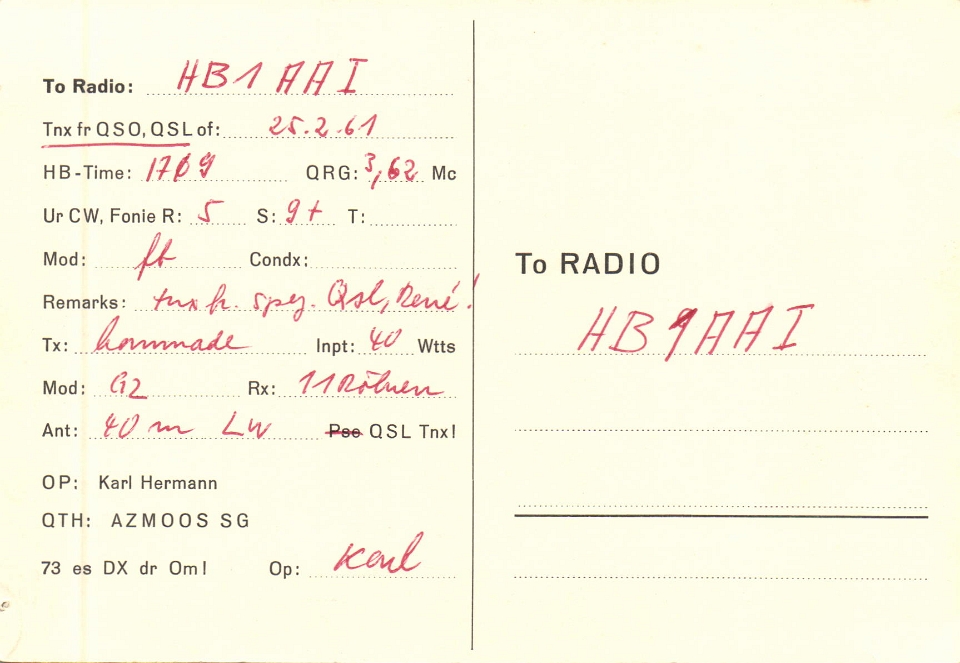 To Radio: HB1 AAI
Tnx fr QSO, QSL of: 25.2.61
HB-Time: 1709 QRG: 3,62 Mc
Ur CW, Fonie R: 5 S: 9+ T:
Mod: fb Condx:
Remarks: tnx fr. spez. Qsl, René!
Tx: hommade Inpt: 40 Wtts
Mod: G2 Rx: 11 Röhren
Ant: 40 m LW Pse QSL Tnx!
OP: Karl Hermann
QTH: AZMOOS SG
73 es DX dr Om! Op: Karl
To RADIO
HB9AAI